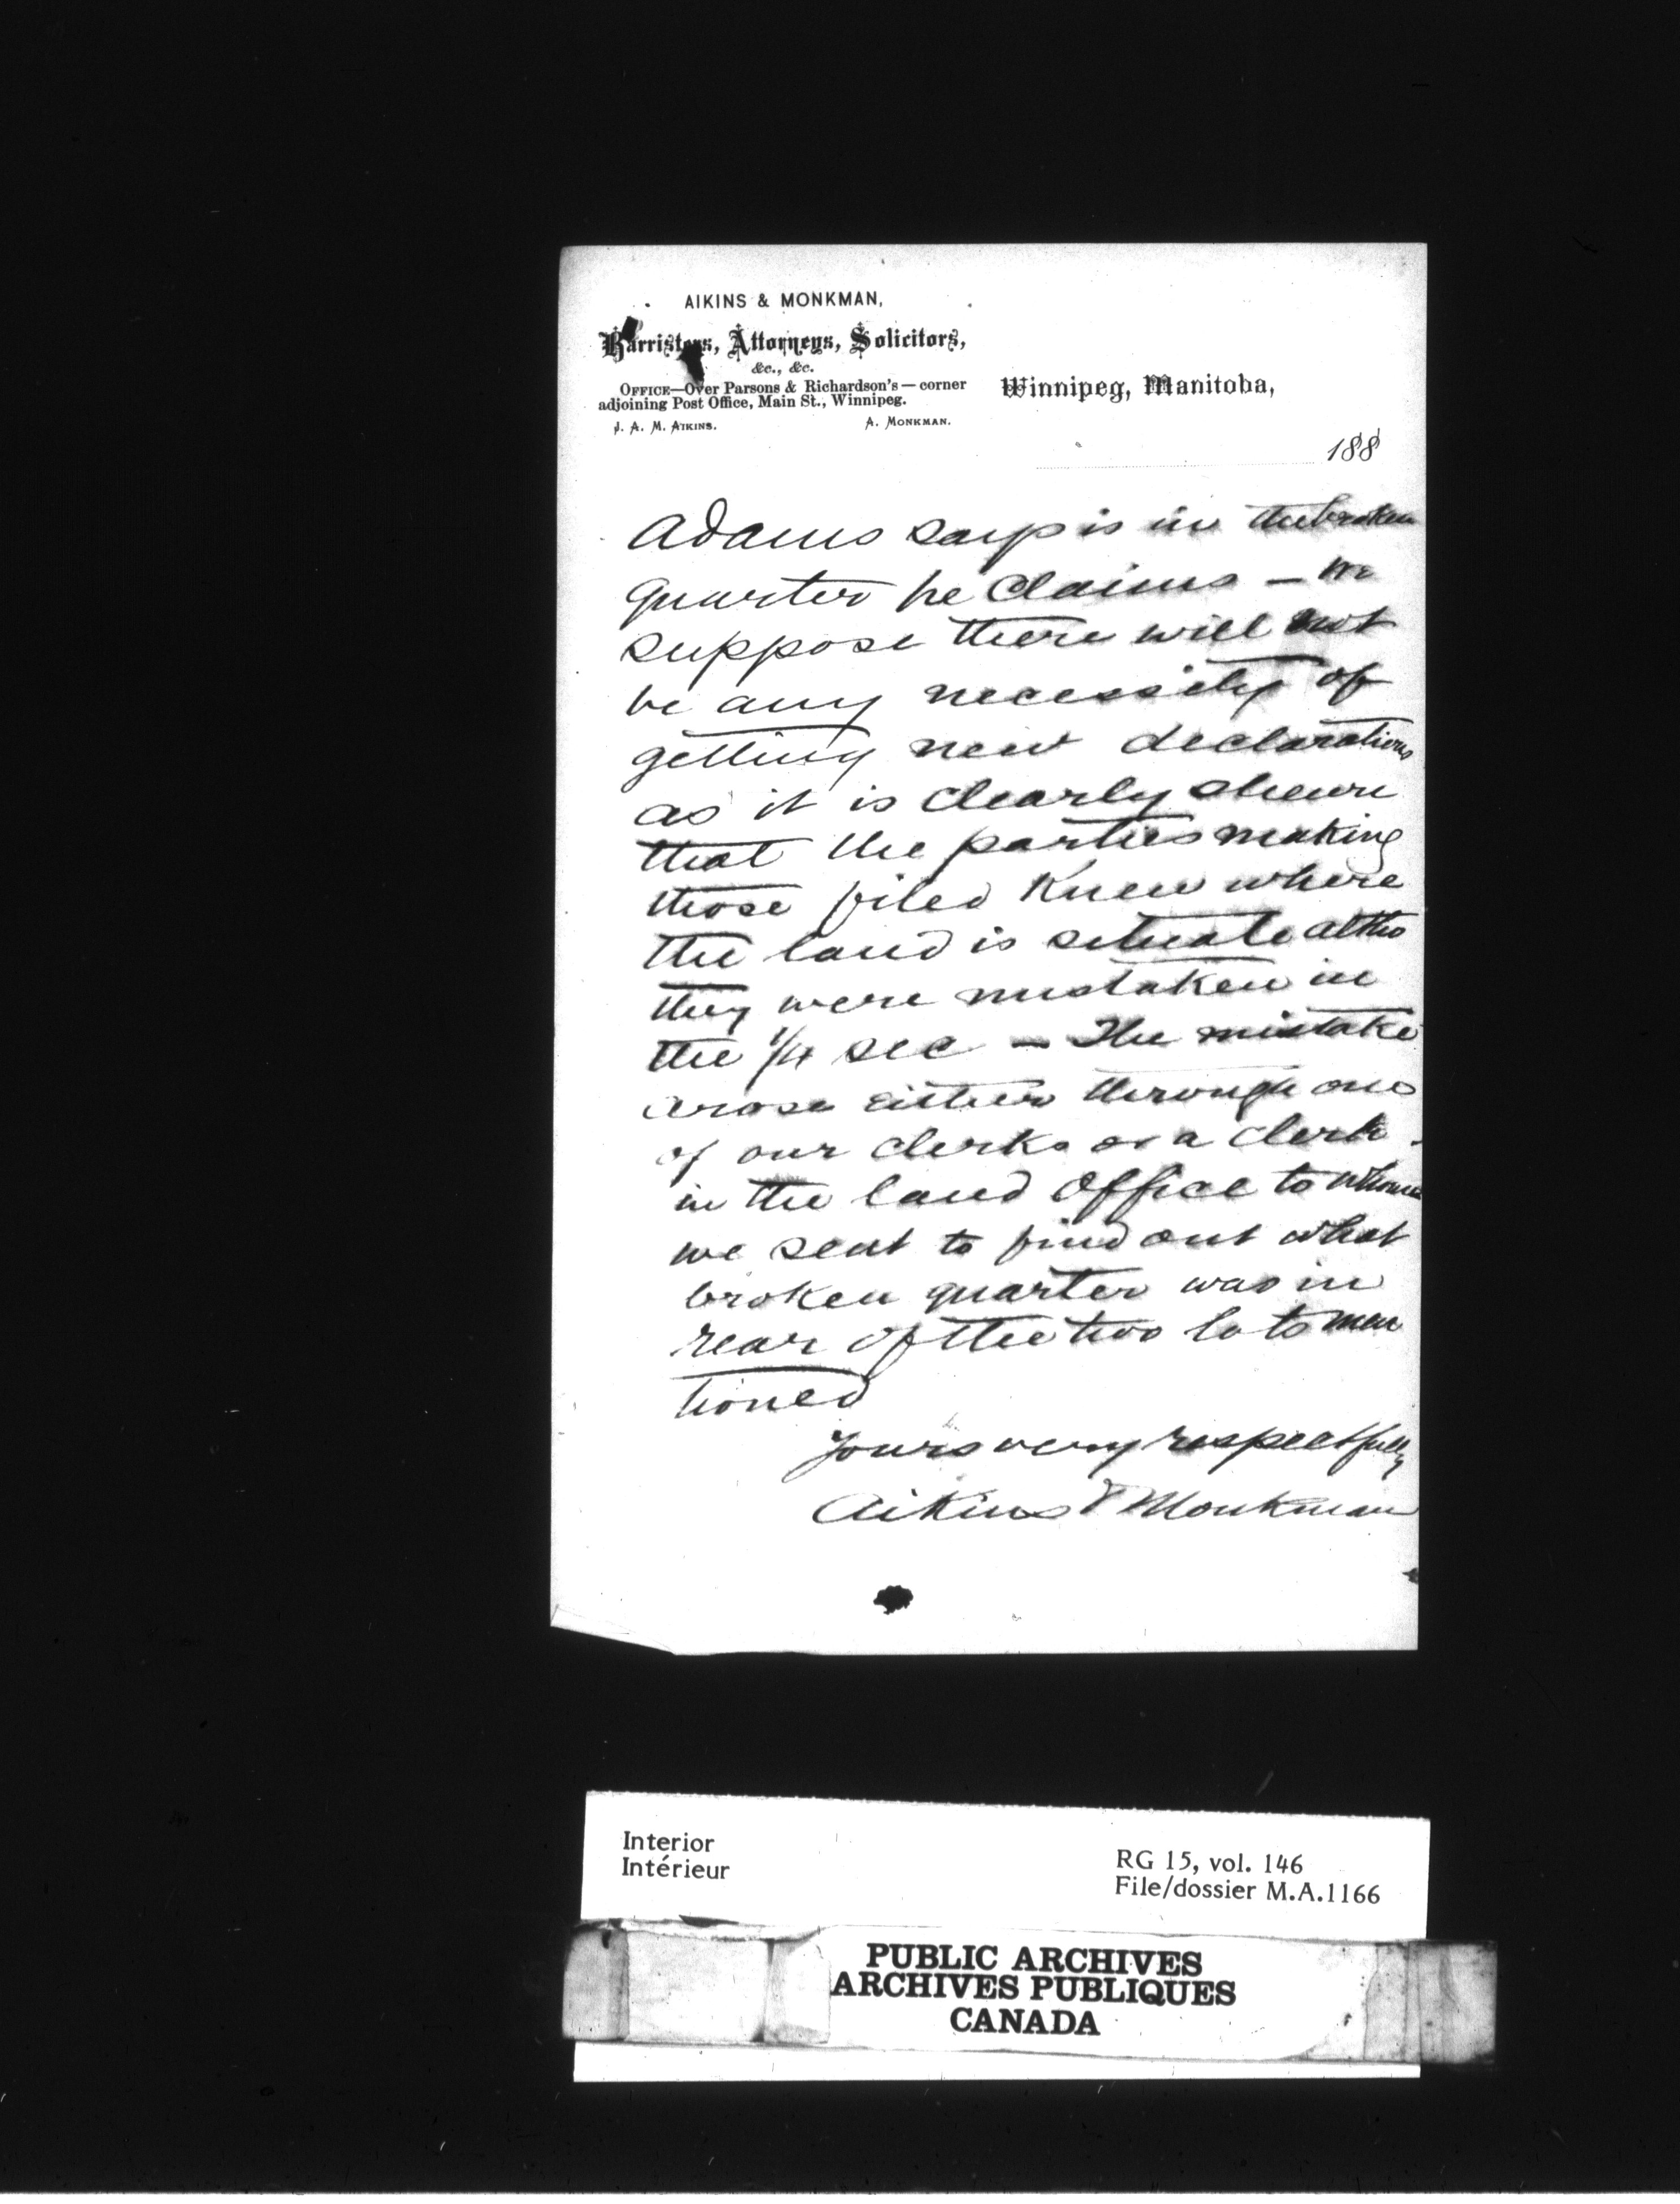 AIKINS & MONKMAN,
Barristers, Attorneys, Solicitors,
&c., &c.
OFFICE—Over Parsons & Richardson's — corner
adjoining Post Office, Main St., Winnipeg.
J. A. M. AIKINS. A. MONKMAN.
Winnipeg, Manitoba,
188
Adams says is in the broken
quarter he claims – we
suppose there will not
be any necessity of
getting new declarations
as it is clearly shewn
that the parties making
those filed knew where
the land is situate altho
they were mistaken in
the 1/4 sec – The mistake
arose either through one
of our clerks or a clerk
in the land Office to whom
we sent to find out what
broken quarter was in
rear of the two lots men
tioned
Yours very respectfully
Aikins & Monkman
Interior
Intérieur
RG 15, vol. 146
File/dossier M.A.1166
PUBLIC ARCHIVES
ARCHIVES PUBLIQUES
CANADA